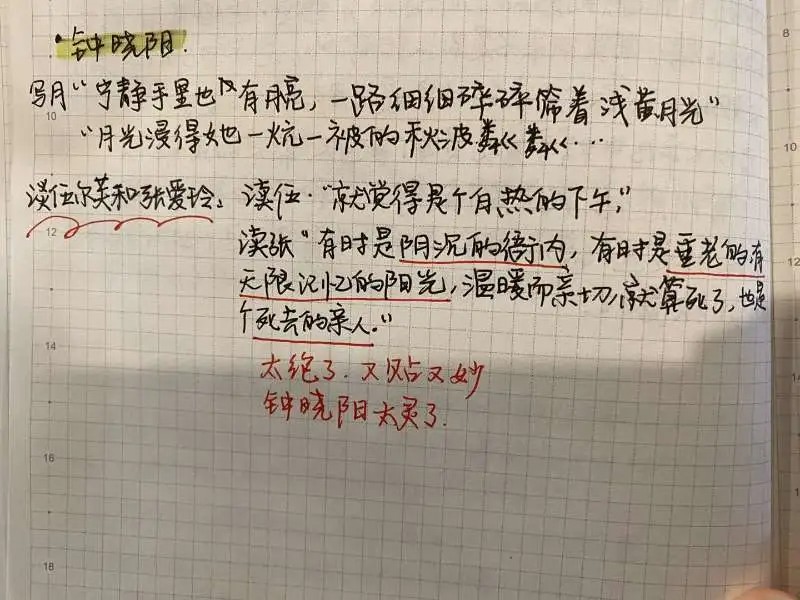 钟晓阳.
写月“宁静手里也有月亮，一路细细碎碎偷着浅黄月光”
“月光浸得她一炕一被的秋波粼粼粼粼…
谈伍尔芙和张爱玲、读伍:“就觉得是个白热的下午，”
读张“有时是阴沉的衖内，有时是垂老的有
无限记忆的阳光，温暖而亲切，就算死了，也是
个死去的亲人。”
太绝了. 又贴又妙
钟晓阳太灵了.
8
10
10
12
12
14
14
16
16
18
18